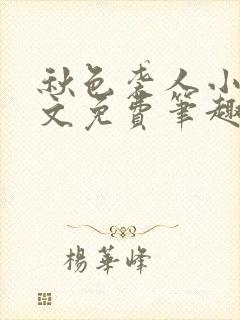 秋色老人小
文免費筆趣
楊華峰